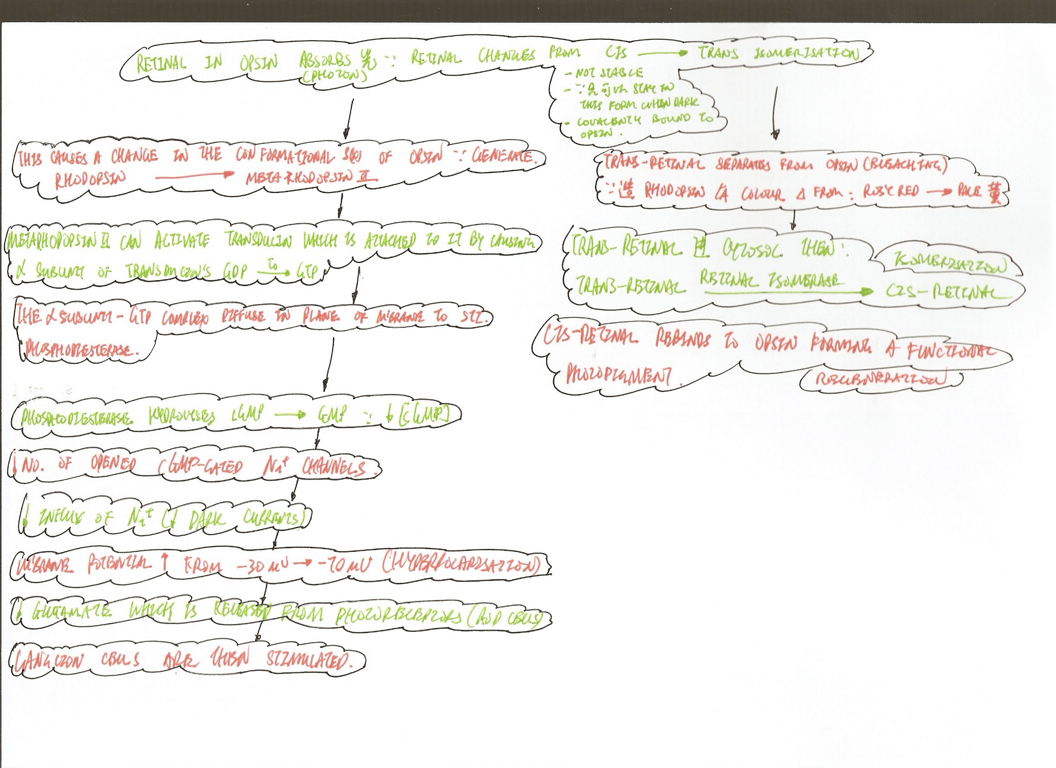 RETINAL IN OPSIN ABSORBS 光 ∵ RETINAL CHANGES FROM CIS → TRANS ISOMERISATION
(PHOTON)
- NOT STABLE
- ∵ 只可以 STAY IN
THIS FORM WHEN DARK
- COVALENTLY BOUND TO
OPSIN.
THIS CAUSES A CHANGE IN THE CONFORMATIONAL OF OPSIN ∵ GENERATE.
RHODOPSIN → METARHODOPSIN II
METARHODOPSIN II CAN ACTIVATE TRANSDUCIN WHICH IS ATTACHED TO IT BY CAUSING
α SUBUNIT OF TRANSDUCIN'S GDP TO → GTP
THE α SUBUNIT-GTP COMPLEX DIFFUSE IN PLANE OF MEMBRANE TO STI.
PHOSPHODIESTERASE.
PHOSPHODIESTERASE HYDROLYSES CGMP → GMP ∵ ↓ [CGMP]
↓ NO. OF OPENED CGMP-GATED Na+ CHANNELS
↓ INFLUX OF Na+ (↓ DARK CURRENTS)
MEMBRANE POTENTIAL ↑ FROM -30 mV → -70 mV (HYPERPOLARISATION)
↓ GLUTAMATE WHICH IS RELEASED FROM PHOTORECEPTORS (ROD CELLS)
GANGLION CELLS ARE THEN STIMULATED.
TRANS-RETINAL SEPARATES FROM OPSIN (BLEACHING)
∵ 造 RHODOPSIN COLOUR Δ FROM: ROSY RED → PALE 黄
TRANS-RETINAL CYTOSOL THEN:
TRANS-RETINAL RETINAL ISOMERASE → CIS-RETINAL
ISOMERISATION
CIS-RETINAL REBINDS TO OPSIN FORMING A FUNCTIONAL
PHOTOPIGMENT.
REGENERATION